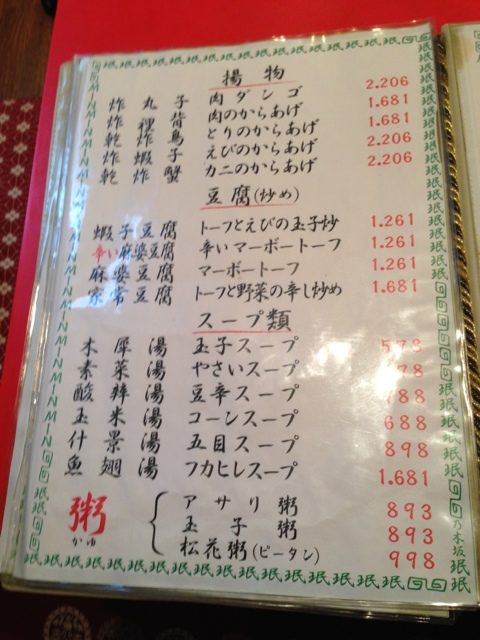 揚物
炸丸子 肉ダンゴ 2.206
炸裡背 肉のからあげ 1.681
乾炸鳥 とりのからあげ 1.681
炸蝦子 えびのからあげ 2.206
乾炸蟹 カニのからあげ 2.206
豆腐(炒め)
蝦子豆腐 トーフとえびの玉子炒 1.261
辛い麻婆豆腐 辛いマーボートーフ 1.261
麻婆豆腐 マーボートーフ 1.261
家常豆腐 トーフと野菜の辛し炒め 1.681
スープ類
木犀湯 玉子スープ
素菜湯 やさいスープ
酸辣湯 豆辛スープ 788
玉米湯 コーンスープ 688
什景湯 五目スープ 898
魚翅湯 フカヒレスープ 1.681
粥 かゆ
アサリ粥 893
玉子粥 893
松花粥(ピータン) 998
MINMINMINMINMINMINMIN
珉珉珉珉珉珉
乃木坂